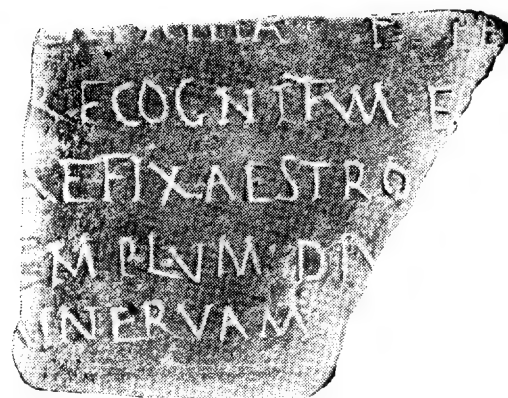 RECOGNITVM E
AEFIXAESTRO
EMPLVM·DIV
MINERVAM